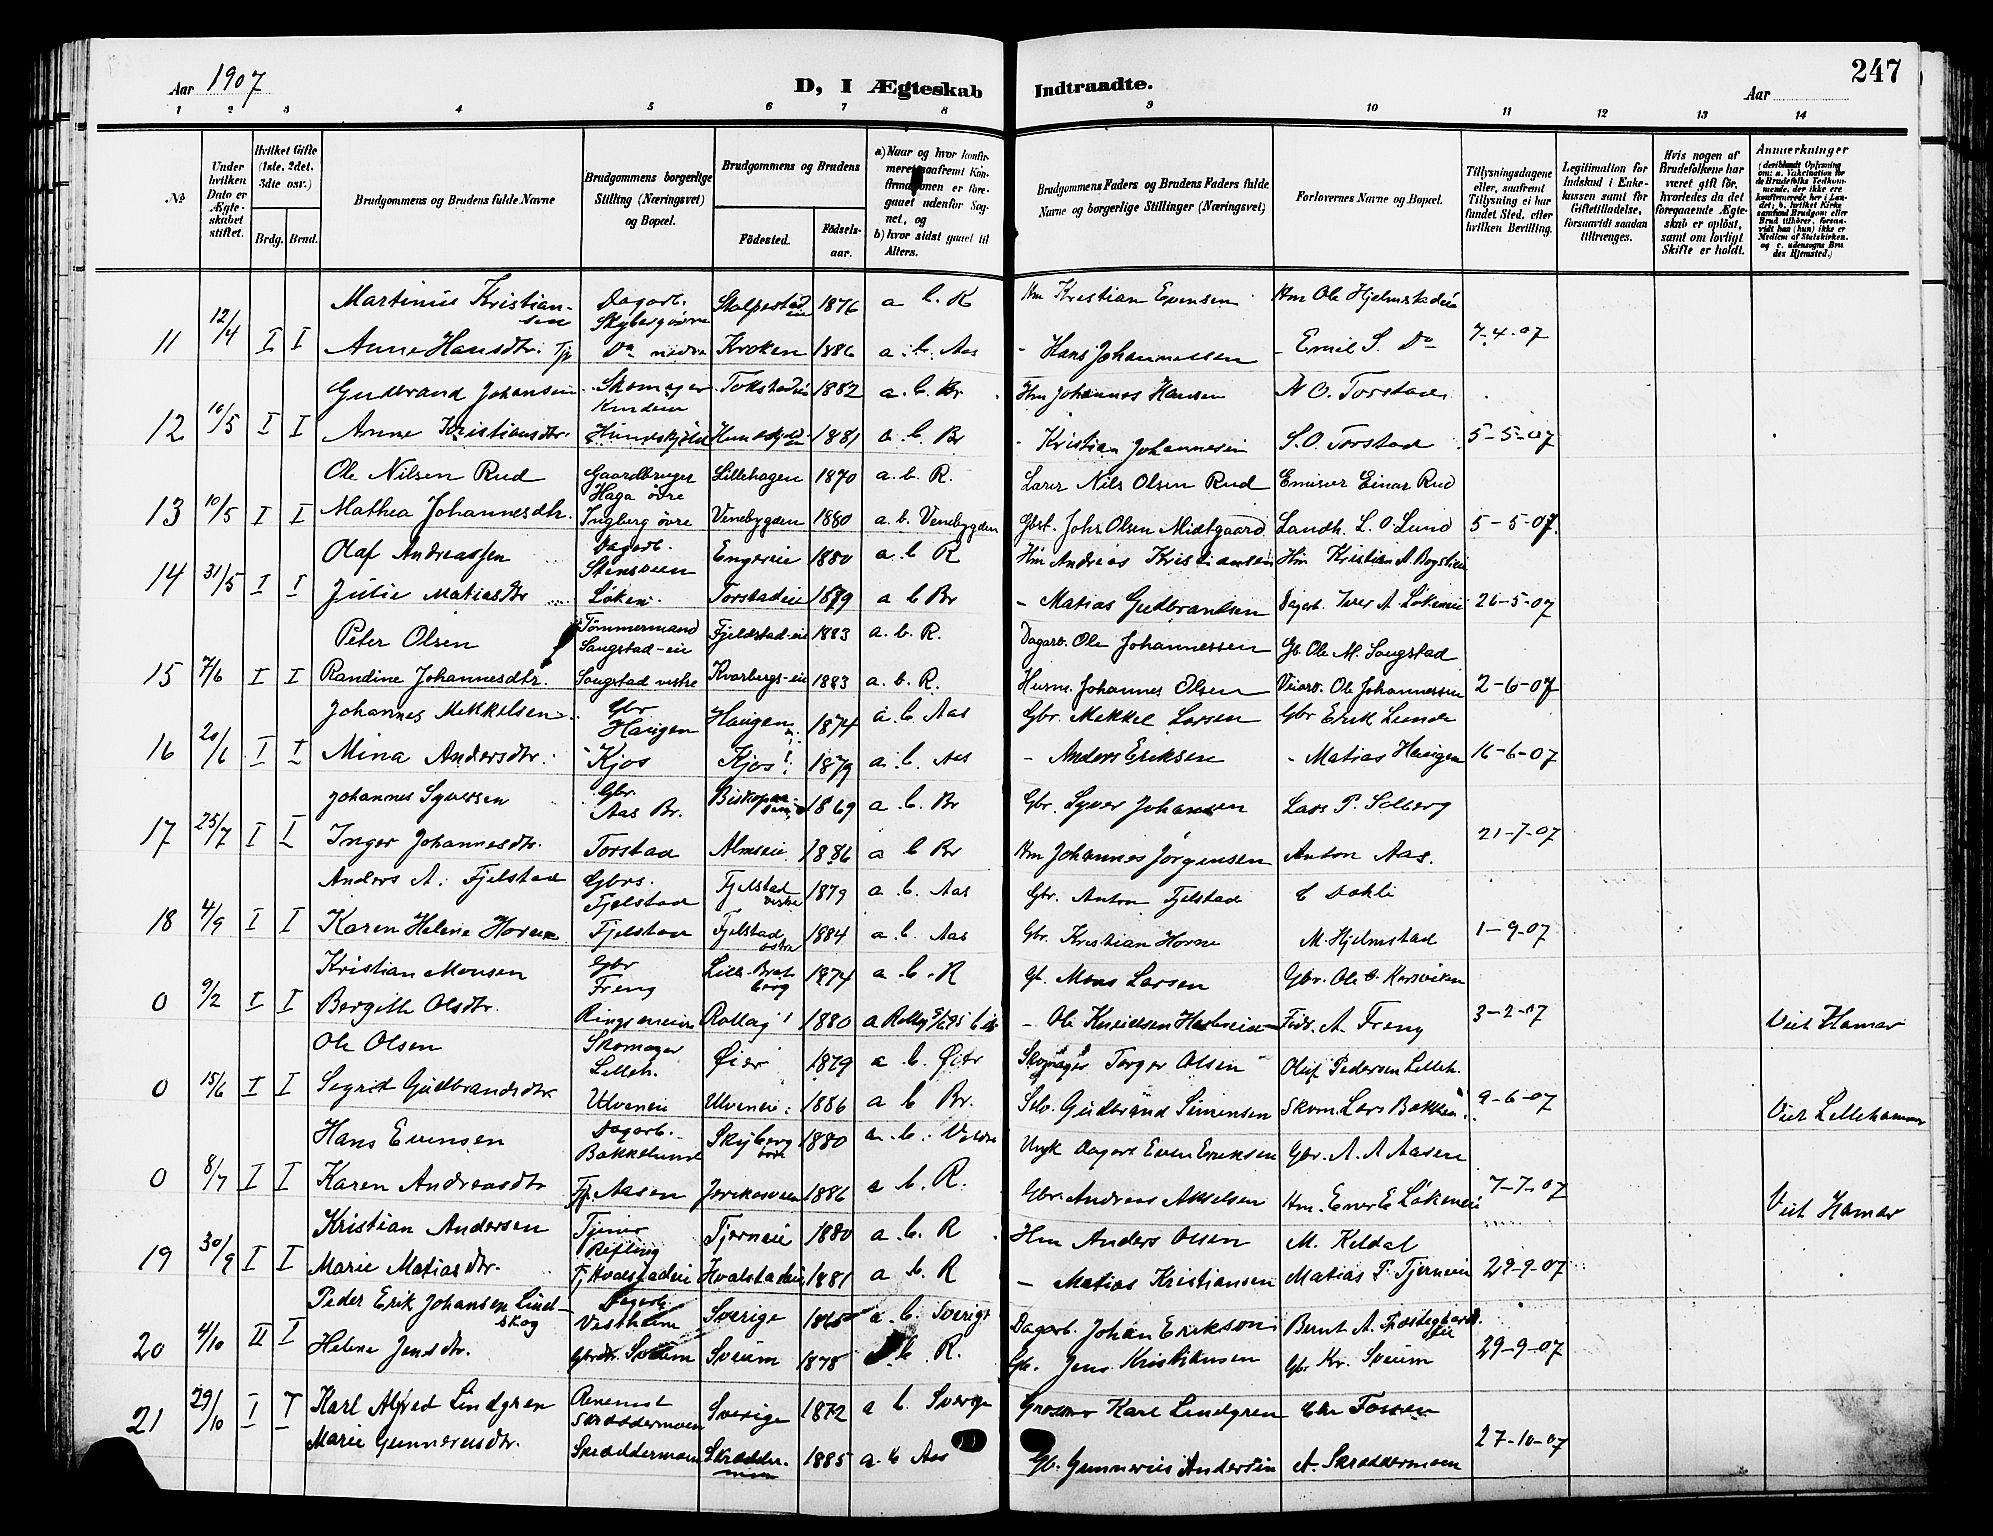 247
Aar 1907 D, I Ægteskab Indtraadte. Aar
1 2 3 4 5 6 7 8 9 10 11 12 13 14
№
Under hvilken Dato er Ægteskabet stiftet.
Hvilket Gifte (1ste, 2det, 3die osv.)
Brdg. Brud.
Brudgommens og Brudens fulde Navne
Brudgommens borgerlige Stilling (Næringsvei) og Bopæl.
Brudgommens og Brudens
Fødested. Fødselsaar.
a) Naar og hvor konfirmeret, saafremt Konfirmationen er foregaaet udenfor Sognet, og
b) hvor sidst gaaet til Alters.
Brudgommens Faders og Brudens Faders fulde Navne og borgerlige Stillinger (Næringsvei)
Forlovernes Navne og Bopæl.
Tillysningsdagene eller, saafremt Tillysning ei har fundet Sted, efter hvilken Bevilling.
Legitimation for Indskud i Enkekassen samt for Giftetilladelse, forsaavidt saadan tiltrænges.
Hvis nogen af Brudefolkene har været gift før, hvorledes da det foregaaende Ægteskab er opløst, samt om lovligt Skifte er holdt.
Anmerkninger (deriblandt Oplysning om: a. Vakcination for de Brudefolks Vedkommende, der ikke ere konfirmerede her i Landet; b. hvilket Kirkesamfund Brudgom eller Brud tilhører, forsaavidt han (hun) ikke er Medlem af Statskirken, og c. udensogns Brudes Hjemsted.)
Martinius Kristiansen Dagarb. Skyberg øvre Stalpestadeie 1876 a b. R Hm Kristian Evensen Hm Ole Hjelmstadeie
11 12/4 I I Anne Hansdtr. Tp Do nedre Kroken 1886 a. b. Aas - Hans Johannessen - Emil S. Do 7-4-07
Gudbrand Johansen Skomager 1882 a b. Br Hm Johannes Hansen A O. Torstad
12 10/5 I I Anne Kristiansdtr. 1881 a b. Br - Kristian Johannesen S. O. Torstad 5-5-07
Ole Nilsen Rud Gaardbruger Haga øvre Lillehagen 1870 a. b. R. Lærer Nils Olsen Rud Emisær Einar Rud
13 10/5 I I Mathea Johannesdtr. Ingberg øvre Venebygden 1880 a. b. Venebygden Gbst. Johs. Olsen Midtgaard Landh. L. O. Lund 5-5-07.
Olaf Andreassen Dagarb. Stensveen Engereie 1880 a b R Hm Andreas Kristiansen Hm Kristian A.
14 31/5 I I Julie Matiasdtr Løken Torstadeie 1879 a b Br - Matias Gudbrandsen Dagarb. Iver A Løkeneie 26-5-07
Peter Olsen Tømmermand Saugstad-eie Fjeldstad-eie 1883 a. b. R. Dagarb. Ole Johannessen Gb. Ole M. Saugstad
15 7/6 I I Randine Johannesdtr. Saugstad vestre Kvarbergs-eie 1883 a. b. R. Husm. Johannes Olsen Veiarb. Ole Johannessen 2-6-07
Johannes Mekkelsen Gbr Haugen Haugen 1874 a b. Aas Gbr. Mekkel Larsen Gbr Erik Lunde
16 20/6 I I Mina Andersdtr. Kjos Kjos 1879 a. b. Aas - Anders Eriksen - Matias Haugen 16-6-07
Johannes Syversen Gbr. Aas Br. 1869 a b. Br Gbr. Syver Johansen Lars P. Solberg
17 25/7 I I Inger Johannesdtr. Torstad Almseie 1886 a b Br Hm Johannes Jørgensen Anton Aas. 21-7-07
Anders A. Fjelstad Gbrs. Fjelstad Fjelstad vestre 1879 a. b. Aas Gbr. Anton Fjelstad C Dahli
18 4/9 I I Karen Helene Horne Fjelstad Fjelstad østre 1884 a. b. Aas Gbr. Kristian Horne M. Hjelmstad 1-9-07
Kristian Monsen Gbr Freng 1874 a. b. R Gb. Mons Larsen Gbr. Ole O. Korsveien
0 9/2 I I Bergitte Olsdtr. Rollag 1880 a Rollag - Ole A. Freng 3-2-07 Viet Hamar
Ole Olsen Skomager Lilleh. Øier 1879 a b. Øier Skomager Torger Olsen Oluf Pedersen Lilleh.
0 15/6 I I Segrid Gudbrandsdtr Ulveneie Ulveneie 1886 a b Br. Selv. Gudbrand Simensen Skom. Lars Bakken 9-6-07 Viet Lillehammer
Hans Evensen Dagarb. Bakkelund Skyberg øvre 1880 a. b. Ungk Dagarb Even Eriksen Gbr. A. A Aasen
0 8/7 I I Karen Andreasdtr Tp. Aasen 1886 a b. R. Gbr. Andreas Akselsen Hm. Even E Løkeneie 7-7-07 Viet Hamar
Kristian Andersen Tjener Rifling Tjerneie 1880 a. b. R Hm Anders Olsen M. Keldal
19 30/9 I I Marie Matiasdtr. Tj Hvalstadeie Hvalstadeie 1881 a b. R - Matias Kristiansen Matias P. Tjerneie 29-9-07
Peder Erik Johansen Lindskog Dagarb. Vestheim Sverige 1865 a. b. Sverige Dagarb. Johan Erikson Bernt A. Præstegaardseie
20 4/10 II I Helene Jensdtr. Gbrdtr. Sveum Sveum 1878 b. R. Gb. Jens Kristiansen Gbr Kr. Sveum 29-9-07
Karl Alfred Lindgren Skræddermoen Sverige 1872 a b. Sverige Karl Lindgren Chr Fossen
21 29/10 I I Marie Gunneriusdtr. Skræddermoen Skræddermoen 1885 a. b Aas Gb. Gunnerius Andersen A. Skræddermoen 27-10-07